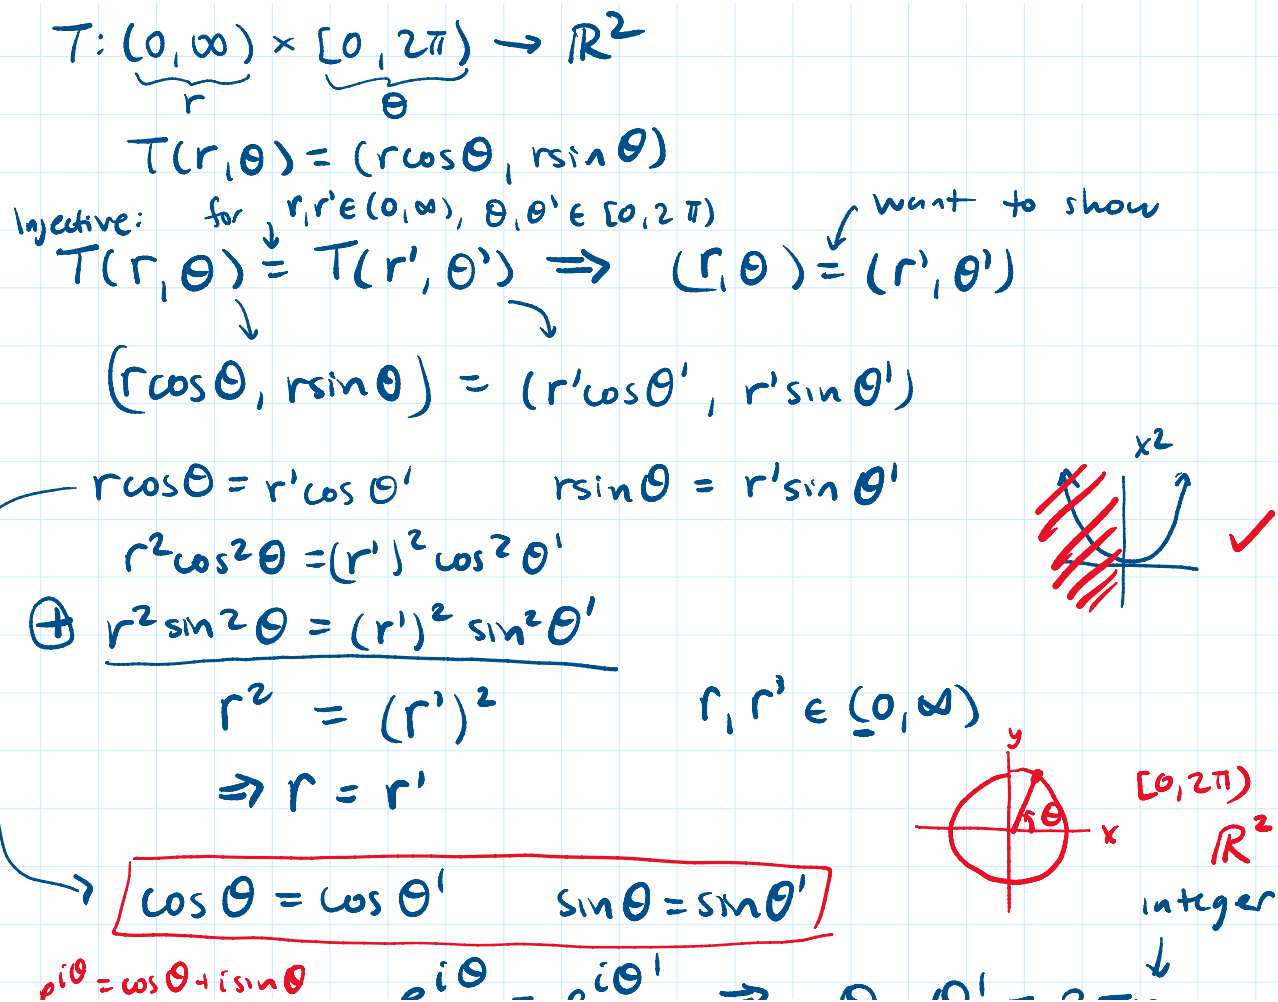 T: (0, ∞) × [0, 2π) → ℝ²
r θ
T(r, θ) = (rcosθ, rsinθ)
Injective: for r, r' ∈ (0, ∞), θ, θ' ∈ [0, 2π) want to show
T(r, θ) = T(r', θ') ⇒ (r, θ) = (r', θ')
(rcosθ, rsinθ) = (r'cosθ', r'sinθ')
x²
rcosθ = r'cosθ' rsinθ = r'sinθ'
r²cos²θ = (r')²cos²θ'
+ r²sin²θ = (r')²sin²θ'
r² = (r')² r, r' ∈ (0, ∞)
y
⇒ r = r'
[0, 2π)
θ x
ℝ²
cosθ = cosθ' sinθ = sinθ'
integer
e^{iθ} = cosθ + i sinθ e^{iθ} = e^{iθ'} ⇒